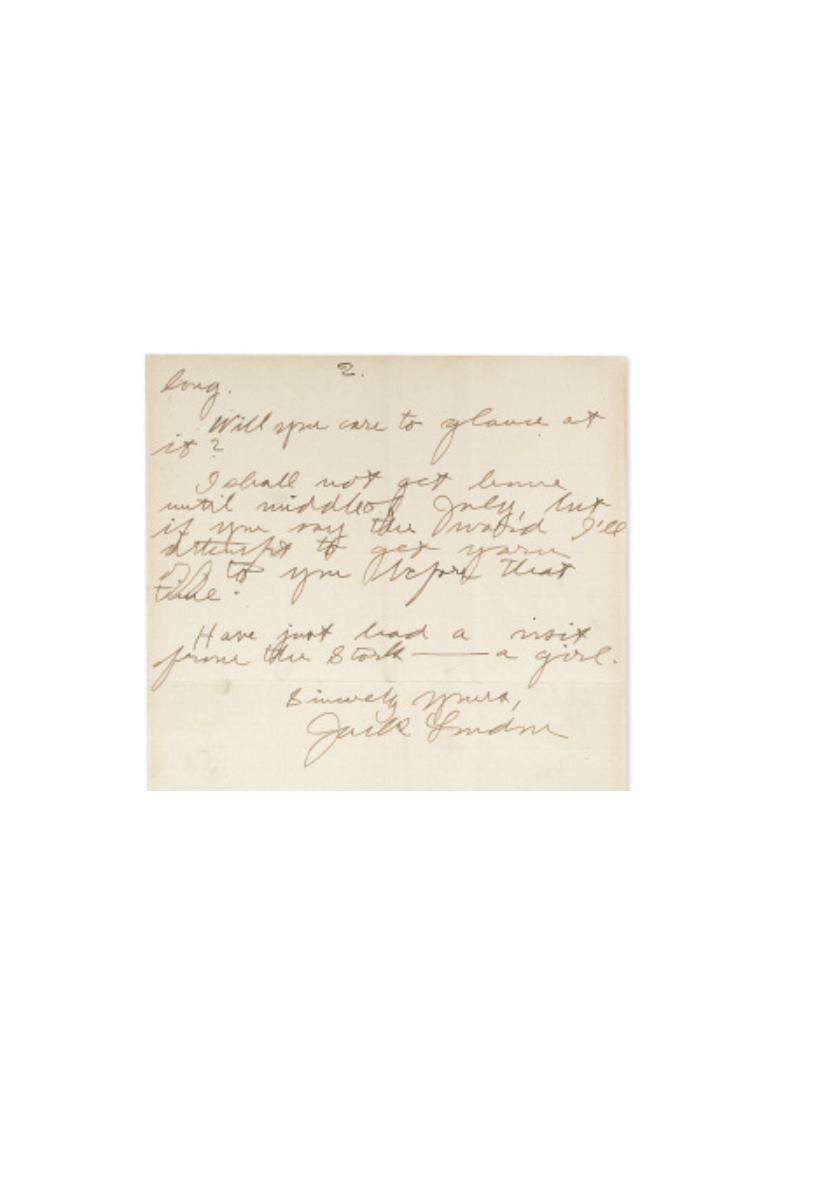 2.
long.
Will you care to glance at
it?
I shall not get home
until middle of July, but
if you say the word I'll
attempt to get yarn
off to you before that
time.
Have just had a visit
from the Stork — a girl.
Sincerely yours,
Jack London